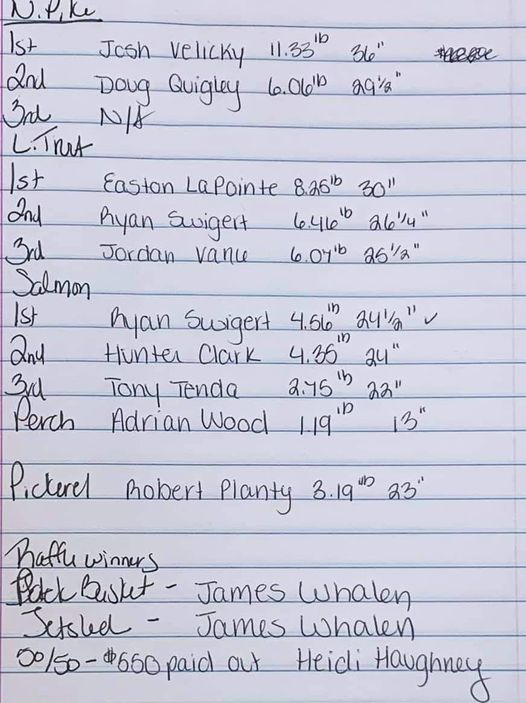 N. Pike
1st Josh Velicky 11.33lb 36"
2nd Doug Quigley 6.06lb 29 1/2"
3rd N/A
L. Trout
1st Easton LaPointe 8.25lb 30"
2nd Ryan Swigert 6.46lb 26 1/4"
3rd Jordan Vanu 6.07lb 25 1/2"
Salmon
1st Ryan Swigert 4.56lb 24 1/2" ✓
2nd Hunter Clark 4.35lb 24"
3rd Tony Tenda 2.75lb 22"
Perch Adrian Wood 1.19lb 13"
Pickerel Robert Planty 3.19lb 23"
Raffle winners
Pack Basket - James Whalen
Jetsled - James Whalen
50/50 - $550 paid out Heidi Haughney